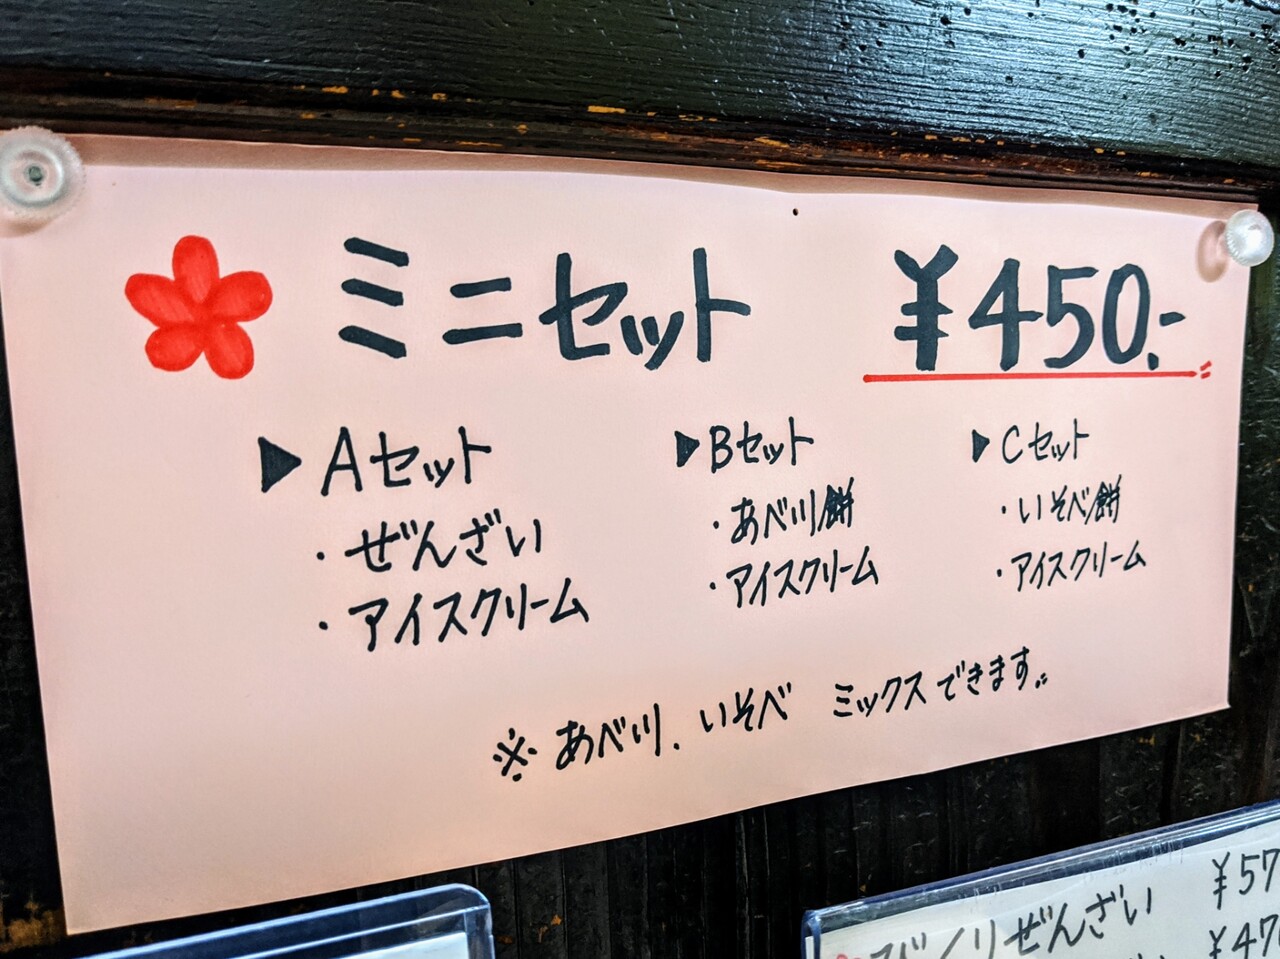 ミニセット ¥450.-
▶Aセット
・ぜんざい
・アイスクリーム
▶Bセット
・あべ川餅
・アイスクリーム
▶Cセット
・いそべ餅
・アイスクリーム
※あべ川、いそべ ミックスできます。
ぜんざい ¥57
¥47